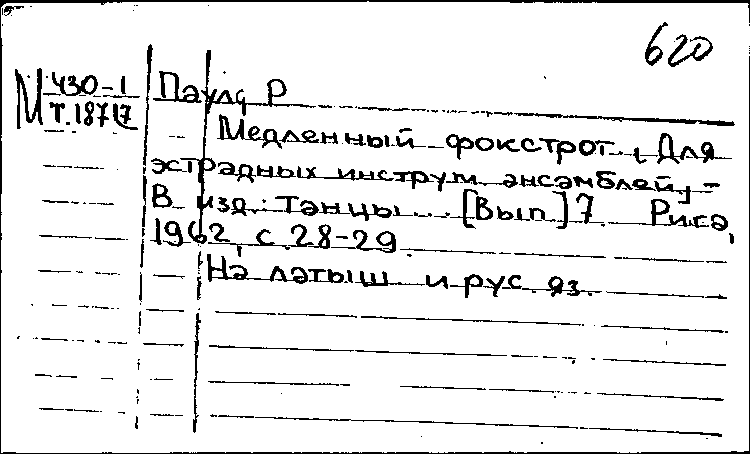 620
М 430-1
Т.18717
Паулс Р
Медленный фокстрот. [Для
эстрадных инструм. ансамблей] -
В изд.: Танцы... [Вып] 7 Рига,
1962, с. 28-29.
На латыш и рус. яз.